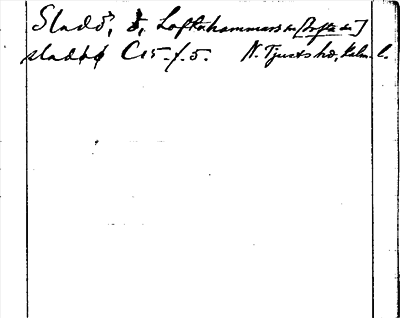 Sladö, ö, Loftahammars sn [Lofta sn]
sladøø C15-f.5. N. Tjusts hd, Kalm. l.